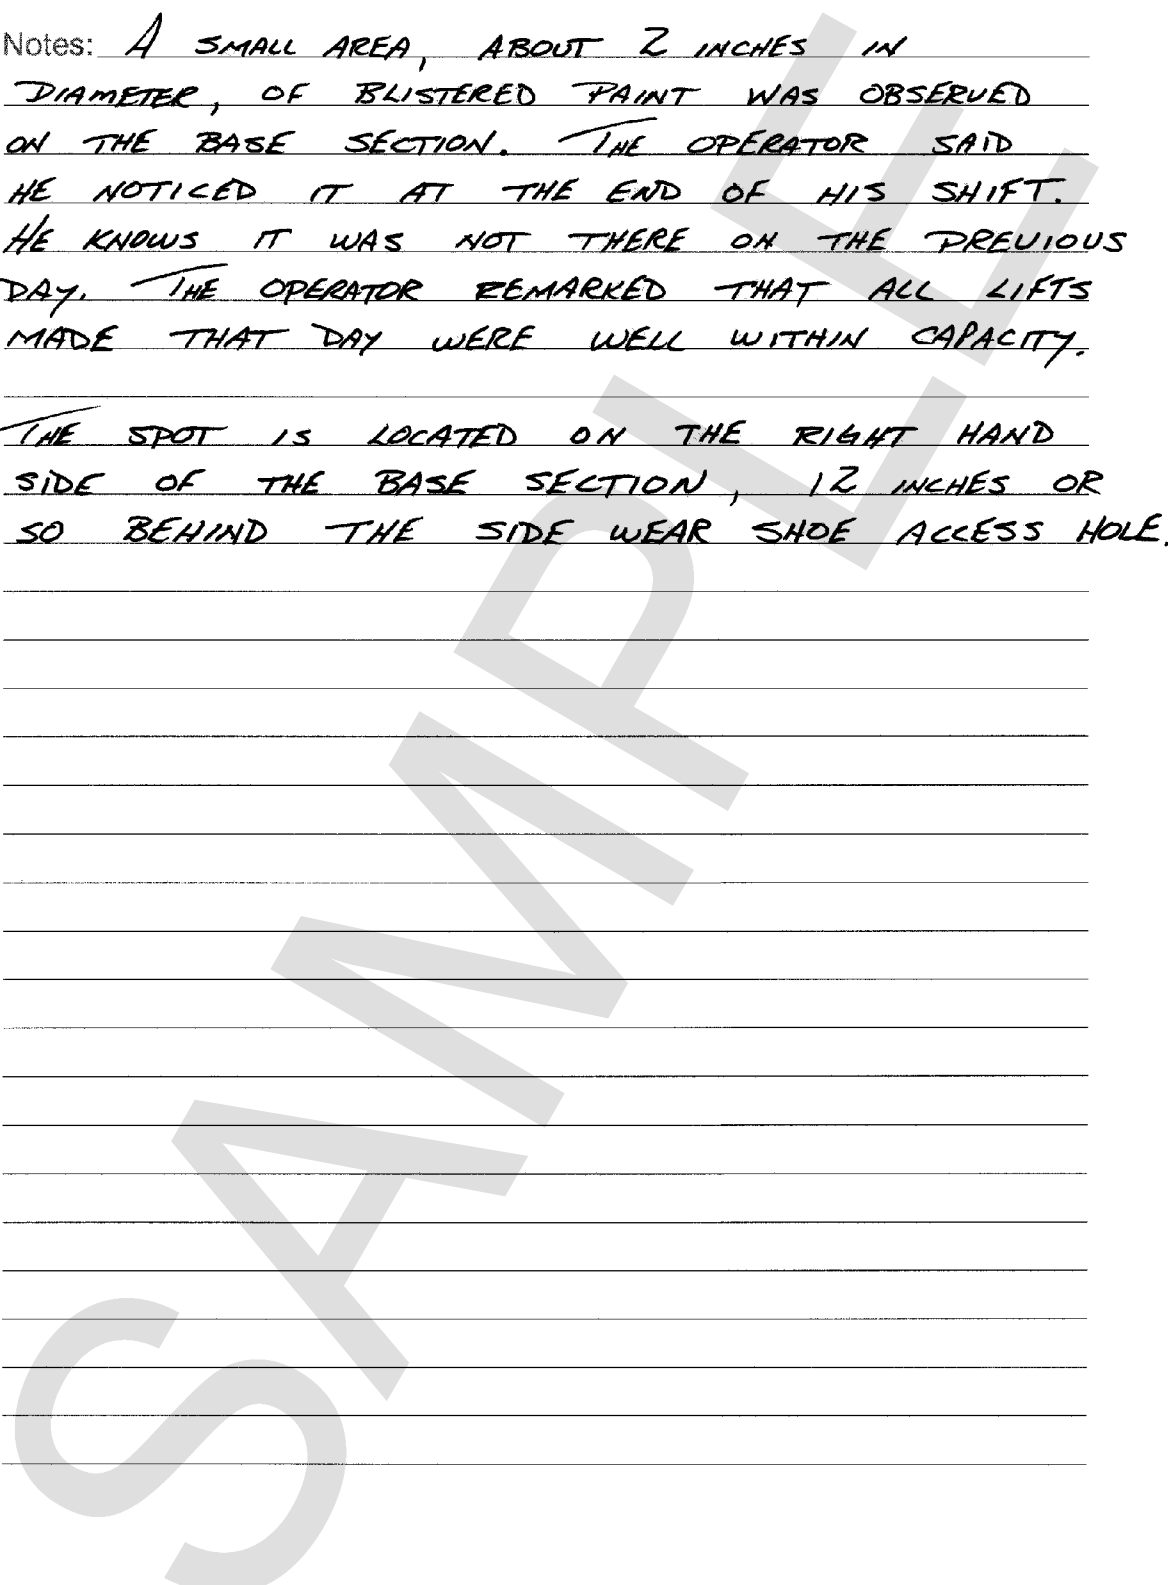 Notes: A SMALL AREA, ABOUT 2 INCHES IN
DIAMETER, OF BLISTERED PAINT WAS OBSERVED
ON THE BASE SECTION. THE OPERATOR SAID
HE NOTICED IT AT THE END OF HIS SHIFT.
HE KNOWS IT WAS NOT THERE ON THE PREVIOUS
DAY. THE OPERATOR REMARKED THAT ALL LIFTS
MADE THAT DAY WERE WELL WITHIN CAPACITY.
THE SPOT IS LOCATED ON THE RIGHT HAND
SIDE OF THE BASE SECTION, 12 INCHES OR
SO BEHIND THE SIDE WEAR SHOE ACCESS HOLE.
SAMPLE